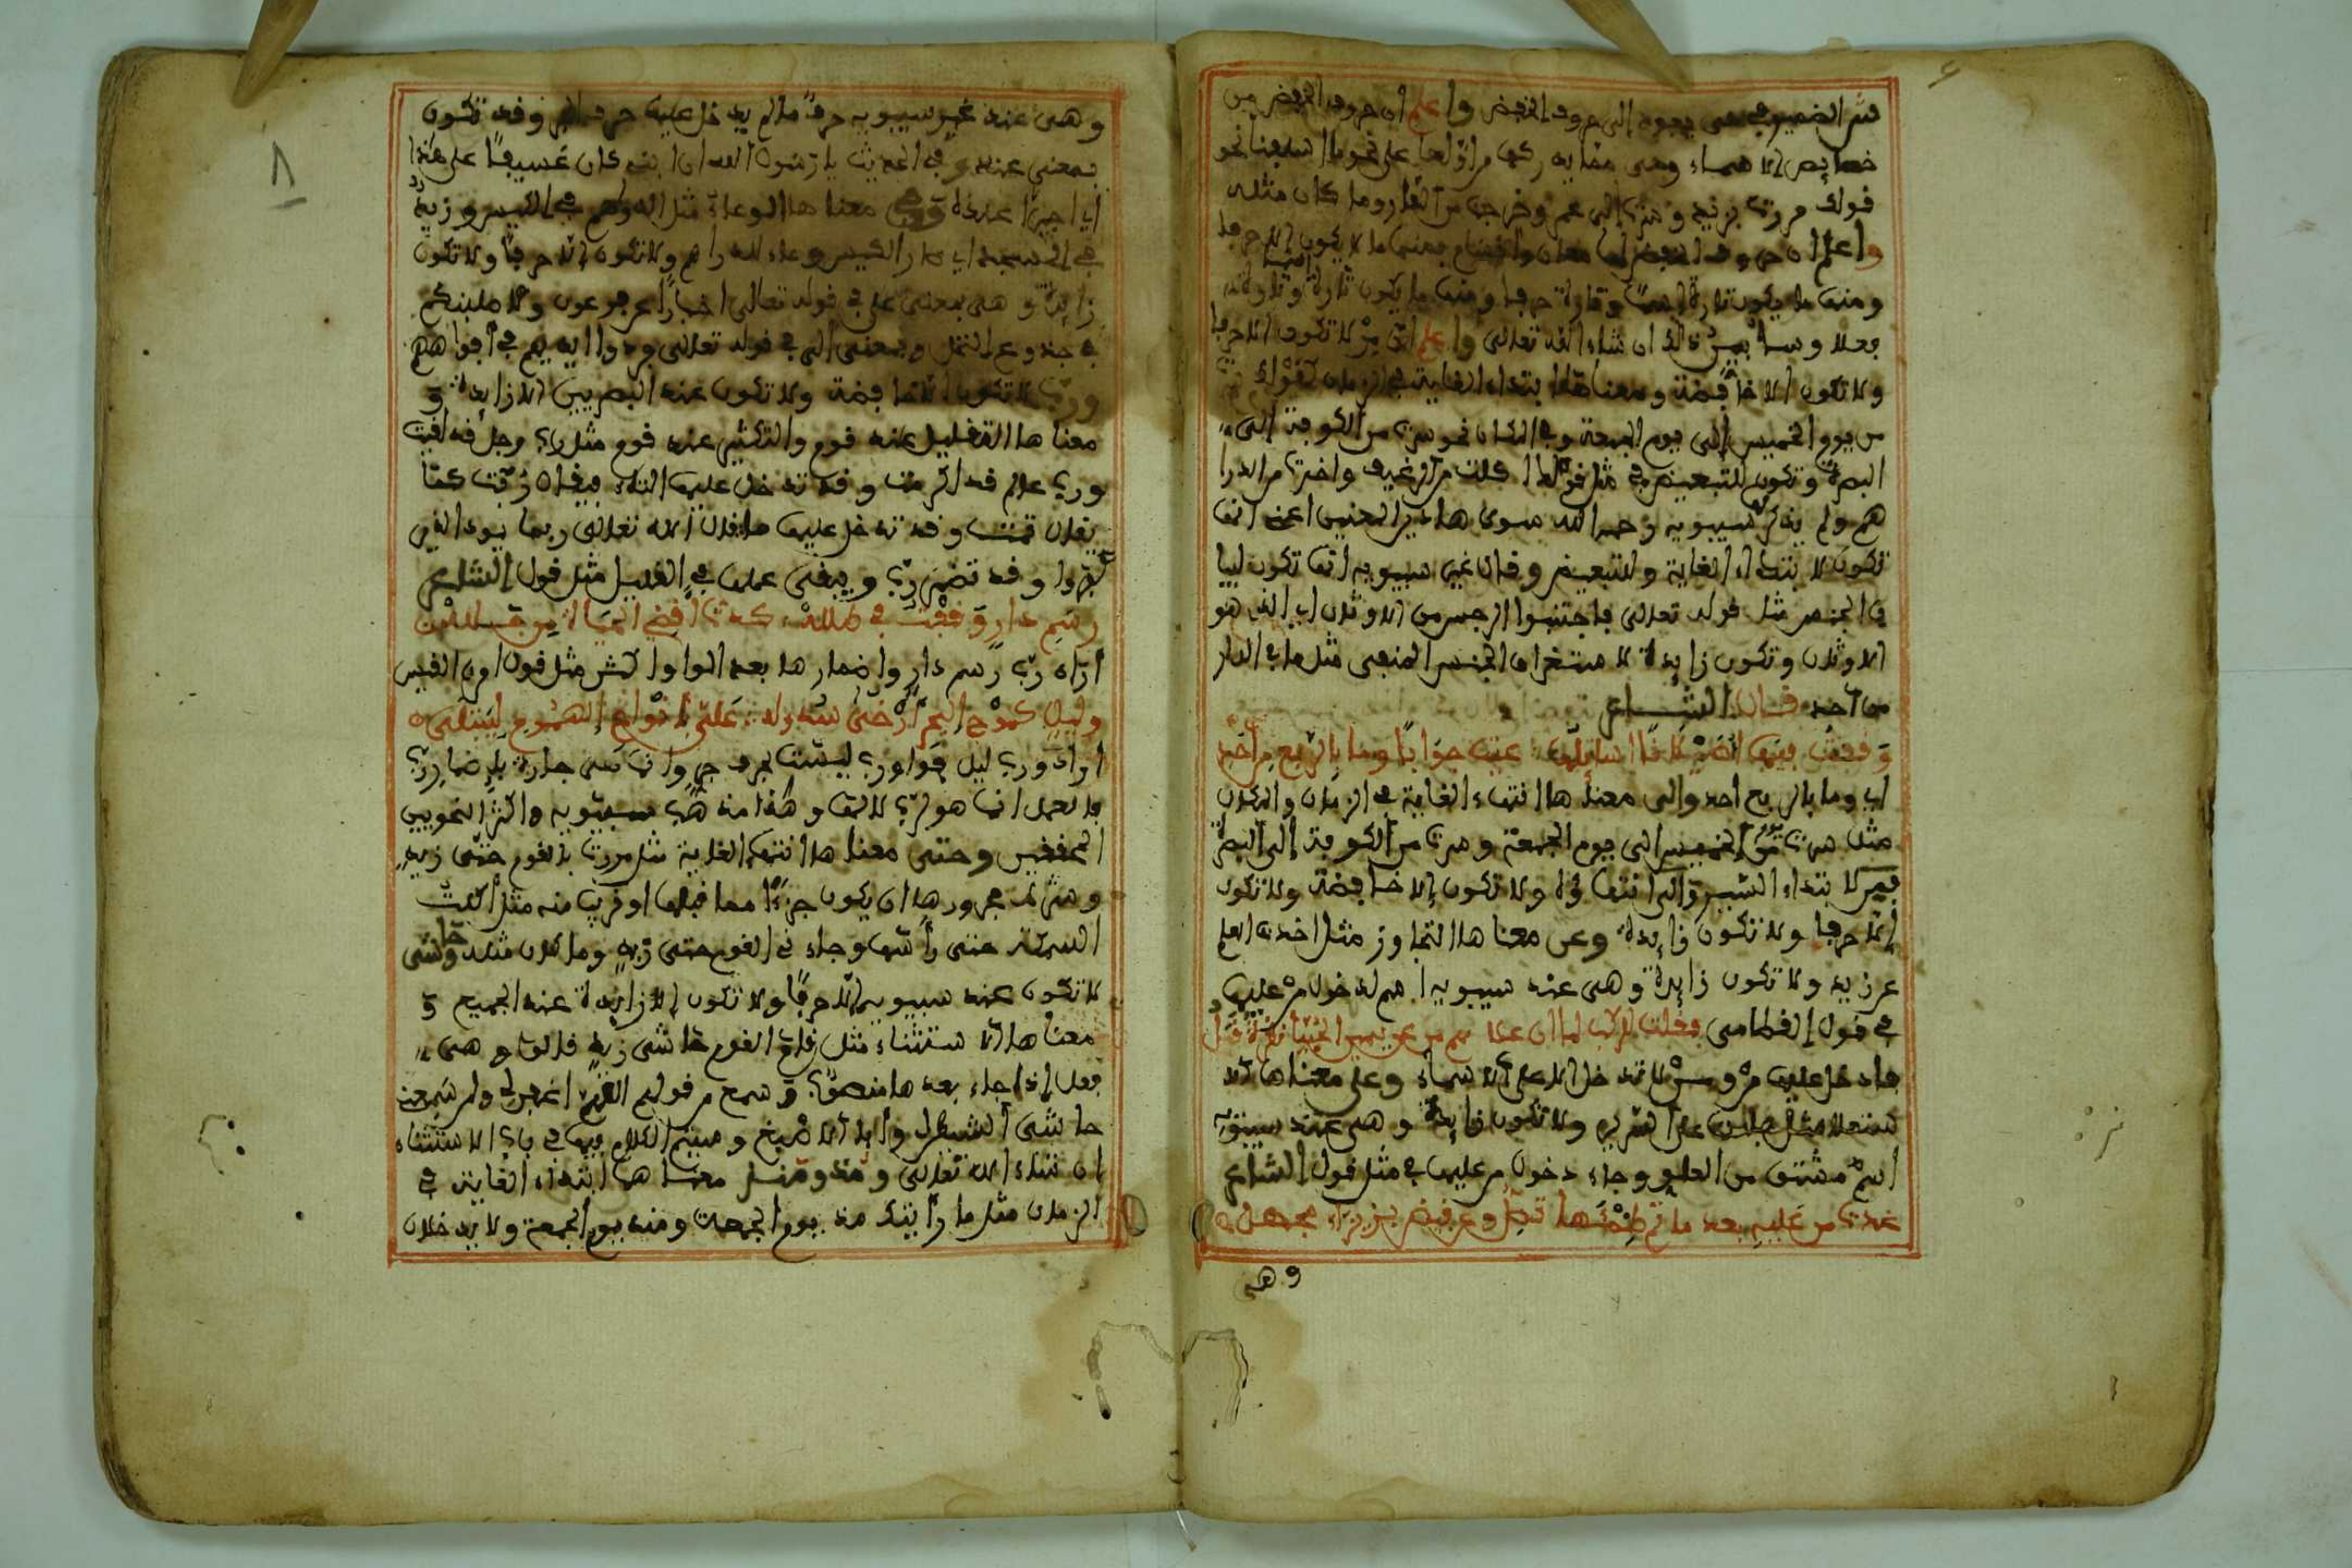 ثم الضمير في يعود إلى حروف الخفض واعلم أن حروف الخفض من
خصايص الاسماء وهى مضايه ركها من اولها على نحو ما اسلفنا نحو
قولك مررت بزيد وسرت إلى عمر وخرجت من الدار وما كان مثله
واعلم ان حروف الخفض لها معان واقسام فمنها ما لا يكون الا حرفا
ومنها ما يكون تارة اسما وتارة حرفا ومنها ما يكون تارة وتارة
فعلا وسأبين ذلك ان شاء الله تعالى واعلم ان من لا تكون الا حرفا
ولا تكون الا خافضة ومعناها ابتداء الغاية في الزمان كقولك
من يوم الخميس إلى يوم الجمعة وفي المكان نحو سرت من الكوفة إلى
البصرة وتكون للتبعيض في مثل قولك اكلت من الرغيف واخذت من الدرا
هم ولم يذكر سيبويه رحمه الله سوى هاذين المعنيين اعنى انها
تكون لابتداء الغاية وللتبعيض وقال غير سيبويه انها تكون لبيا
ن الجنس مثل قوله تعالى فاجتنبوا الرجس من الاوثان اي الذي هو
الاوثان وتكون زايدة لاستغراق الجنس المنفي مثل ما في الدار
من احد قال الشاعر
وقفت فيها اصيلانا اسائلها عيت جوابا وما بالربع من احد
اي وما بالربع احد والى معناها انتهاء الغاية في الزمان والمكان
مثل سرت من الخميس الى يوم الجمعة وسرت من الكوفة إلى البصرة
فمن لابتداء السير وإلى انتهاؤه ولا تكون إلا خافضة ولا تكون
إلا حرفا ولا تكون زايدة وعن معناها التجاوز مثل اخذت العلم
عن زيد ولا تكون زايدة وهى عند سيبويه اسم لدخول من عليها
في قول القطامى فقلت للركب لما ان علا بهم من عن يمين الحبيا نظرة قبل
فادخل عليها من ومن لا تدخل الا على الاسماء وعلى معناها الا
ستعلا مثل جلست على السرير ولا تكون زايدة وهى عند سيبويه
اسم مشتق من العلو وجاء دخول من عليها في مثل قول الشاعر
غدت من عليه بعد ما تم ظمئها تصل وعن قيض بزيزاء مجهل
وهى
٨
وهى عند غير سيبويه حرف ما لم يدخل عليه حرف الجر وقد تكون
بمعنى عند وفي الحديث يا رسول الله ان ابني كان عسيفا على هذا
اي اجيرا عنده وفي معناها الوعاء مثل الدراهم في الكيس وزيد
في المسجد اي صار الكيس وعاء للدراهم ولا تكون إلا حرفا ولا تكون
زايدة وهى بمعنى على في قوله تعالى اخبارا عن فرعون ولاصلبنكم
في جذوع النخل وبمعنى إلى في قوله تعالى فردوا ايديهم في افواههم
ورب لا تكون الا خافضة ولا تكون عند البصريين الا زايدة و
معناها التقليل عند قوم والتكثير عند قوم مثل رب رجل قد لقيت
ورب عالم قد اكرمت وقد تدخل عليها التاء فيقال ربت كما
يقال ثمت وقد تدخل عليها ما قال الله تعالى ربما يود الذين
كفروا وقد تضمر رب ويبقى عملها في القليل مثل قول الشاعر
رسم دار وقفت في طلله كدت اقضي الحياة من جلله
اراد رب رسم دار واضمارها بعد الواو اكثر مثل قول امرئ القيس
وليل كموج البحر ارخى سدوله علي بانواع الهموم ليبتلى
اراد ورب ليل فواو رب ليست بحرف جر وانما هى جارة باضمار رب
فالعمل انما هو لرب لا لها وهذا مذهب سيبويه واكثر النحويين
المحققين وحتى معناها انتهاء الغاية مثل مررت بالقوم حتى زيد
وشرط مجرورها ان يكون جزءا مما قبلها او قريب منه مثل اكلت
السمكة حتى رأسها وجاءني القوم حتى زيد وما كان مثله وحاشى
لا تكون عند سيبويه إلا حرفا ولا تكون الا زايدة عند الجميع و
معناها الاستثناء مثل قام القوم حاشى زيد فالوا وهى
فعل إذا جاء بعدها منصوب وسمع من قولهم اللهم اغفر لي ولمن سمعنى
حاشى الشيطان وأبا الاصبغ وسيتم الكلام فيها في باب الاستثناء
ان شاء الله تعالى ومذ ومنذ معناهما ابتداء الغاية في
الزمان مثل ما رأيتك مذ يوم الجمعة ومنذ يوم الجمعة ولا يدخلان